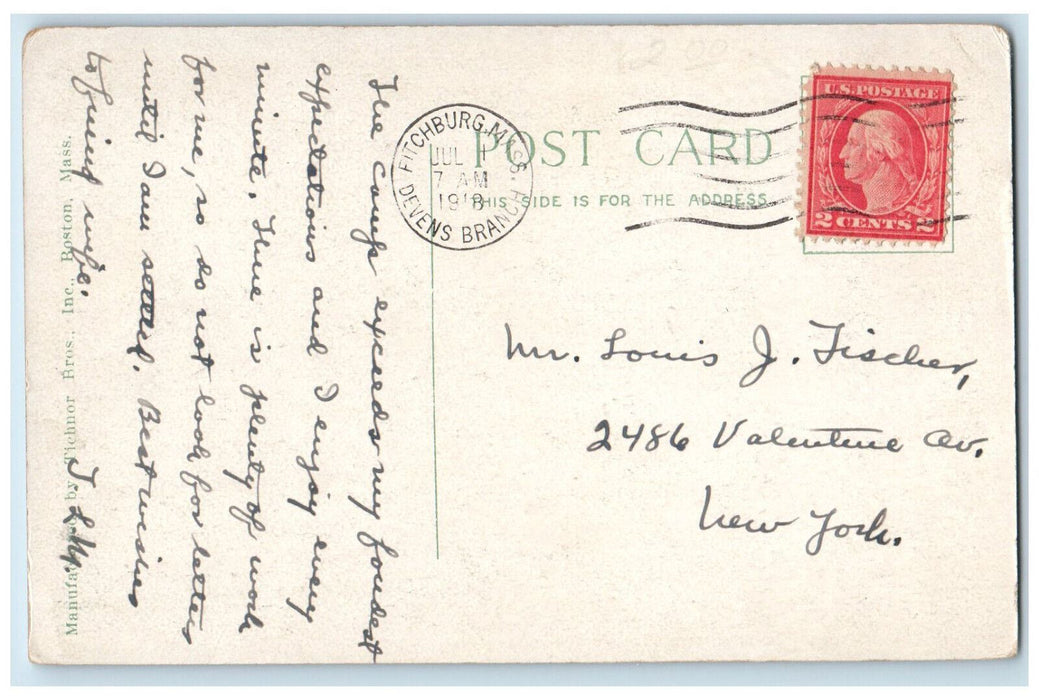 The camp exceeds my fondest
expectations and I enjoy every
minute. There is plenty of work
for me, so do not look for letters
until I am settled. Best wishes
to
Manufactured by Tichnor Bros., Inc., Boston, Mass.
FITCHBURG, MASS.
JUL 1
7 AM
1918
DEVENS BRANCH
POST CARD
THIS SIDE IS FOR THE ADDRESS
U.S. POSTAGE
2 CENTS 2
Mr. Louis J. Fischer,
2486 Valentine Av.
New York.